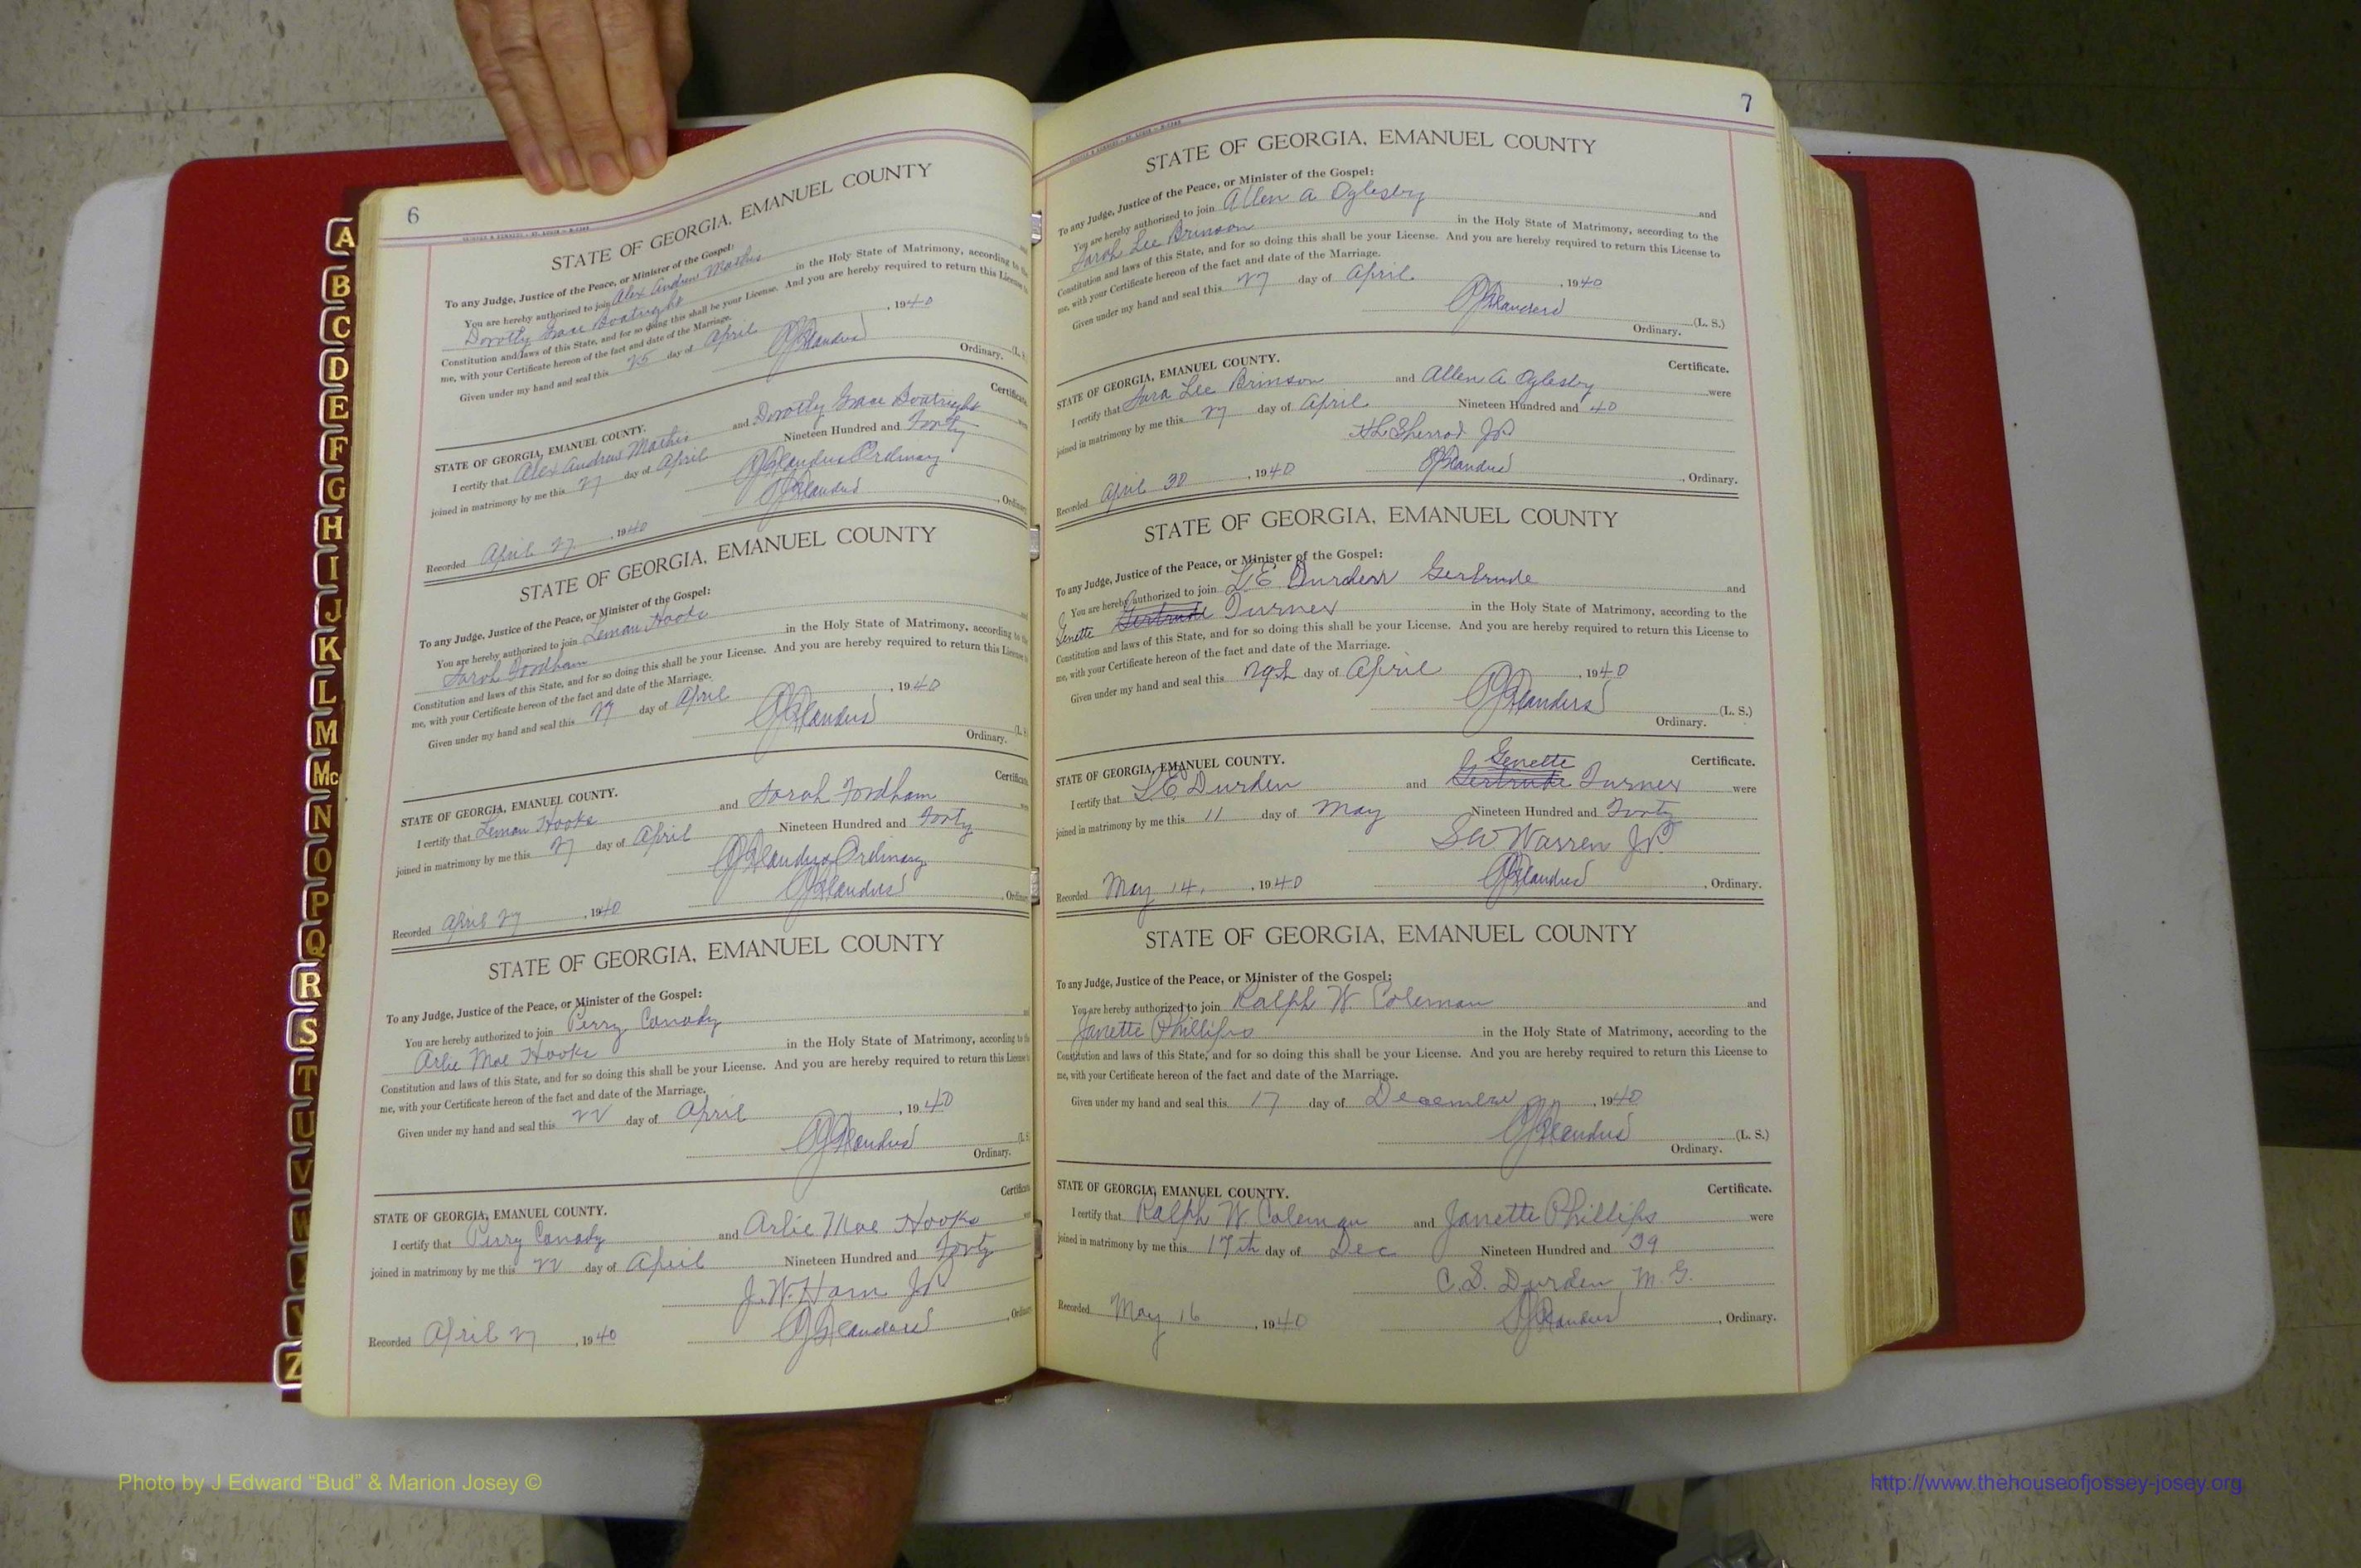 A
B
C
D
E
F
G
H
I
J
K
L
M
Mc
N
O
P
Q
R
S
T
U
V
W
Z
6
STATE OF GEORGIA, EMANUEL COUNTY
To any Judge, Justice of the Peace, or Minister of the Gospel:
You are hereby authorized to join Alex Andrew Mathis
Dorothy Grace Boatright in the Holy State of Matrimony, according to the
Constitution and laws of this State, and for so doing this shall be your License. And you are hereby required to return this License
me, with your Certificate hereon of the fact and date of the Marriage.
Given under my hand and seal this 25 day of April, 1940
Ordinary. (L. S.
STATE OF GEORGIA, EMANUEL COUNTY. Certificate.
I certify that Alex Andrew Mathis and Dorothy Grace Boatright
joined in matrimony by me this 27 day of April Nineteen Hundred and Forty
Ordinary
Recorded April 27, 1940, Ordinary
STATE OF GEORGIA, EMANUEL COUNTY
To any Judge, Justice of the Peace, or Minister of the Gospel:
You are hereby authorized to join Leman Hooks
Sarah Fordham in the Holy State of Matrimony, according to the
Constitution and laws of this State, and for so doing this shall be your License. And you are hereby required to return this License
me, with your Certificate hereon of the fact and date of the Marriage.
Given under my hand and seal this 27 day of April, 1940
Ordinary. (L. S.
STATE OF GEORGIA, EMANUEL COUNTY. Certificate
I certify that Leman Hooks and Sarah Fordham
joined in matrimony by me this 27 day of April Nineteen Hundred and Forty
Ordinary
Recorded April 27, 1940, Ordinary
STATE OF GEORGIA, EMANUEL COUNTY
To any Judge, Justice of the Peace, or Minister of the Gospel:
You are hereby authorized to join Perry Canady
Arlie Mae Hooks in the Holy State of Matrimony, according to the
Constitution and laws of this State, and for so doing this shall be your License. And you are hereby required to return this License
me, with your Certificate hereon of the fact and date of the Marriage.
Given under my hand and seal this 22 day of April, 1940
(L. S.
Ordinary.
Certificate
STATE OF GEORGIA, EMANUEL COUNTY.
I certify that Perry Canady and Arlie Mae Hooks
joined in matrimony by me this 22 day of April Nineteen Hundred and Forty
J. W. Horn JP
Recorded April 27, 1940, Ordinary
7
STATE OF GEORGIA, EMANUEL COUNTY
To any Judge, Justice of the Peace, or Minister of the Gospel:
You are hereby authorized to join Allen A Oglesby and
Sarah Lee Brinson in the Holy State of Matrimony, according to the
Constitution and laws of this State, and for so doing this shall be your License. And you are hereby required to return this License to
me, with your Certificate hereon of the fact and date of the Marriage.
Given under my hand and seal this 27 day of April, 1940
(L. S.)
Ordinary.
STATE OF GEORGIA, EMANUEL COUNTY. Certificate.
I certify that Sara Lee Brinson and Allen A Oglesby were
joined in matrimony by me this 27 day of April Nineteen Hundred and 40
H L Sherrod JP
Recorded April 30, 1940, Ordinary.
STATE OF GEORGIA, EMANUEL COUNTY
To any Judge, Justice of the Peace, or Minister of the Gospel:
You are hereby authorized to join L E Durden Gertrude and
Genette Gertrude Turner in the Holy State of Matrimony, according to the
Constitution and laws of this State, and for so doing this shall be your License. And you are hereby required to return this License to
me, with your Certificate hereon of the fact and date of the Marriage.
Given under my hand and seal this 29th day of April, 1940
(L. S.)
Ordinary.
STATE OF GEORGIA, EMANUEL COUNTY. Genette Certificate.
I certify that L E Durden and Gertrude Turner were
joined in matrimony by me this 11 day of May Nineteen Hundred and Forty
S W Warren JP
Recorded May 14, 1940, Ordinary.
STATE OF GEORGIA, EMANUEL COUNTY
To any Judge, Justice of the Peace, or Minister of the Gospel:
You are hereby authorized to join Ralph W. Coleman and
Janette Phillips in the Holy State of Matrimony, according to the
Constitution and laws of this State, and for so doing this shall be your License. And you are hereby required to return this License to
me, with your Certificate hereon of the fact and date of the Marriage.
Given under my hand and seal this 17 day of December, 1940
(L. S.)
Ordinary.
STATE OF GEORGIA, EMANUEL COUNTY. Certificate.
I certify that Ralph W. Coleman and Janette Phillips were
joined in matrimony by me this 17th day of Dec Nineteen Hundred and 39
C. S. Durden M. G.
Recorded May 16, 1940, Ordinary.
Photo by J Edward “Bud” & Marion Josey ©
http://www.thehouseofjossey-josey.org